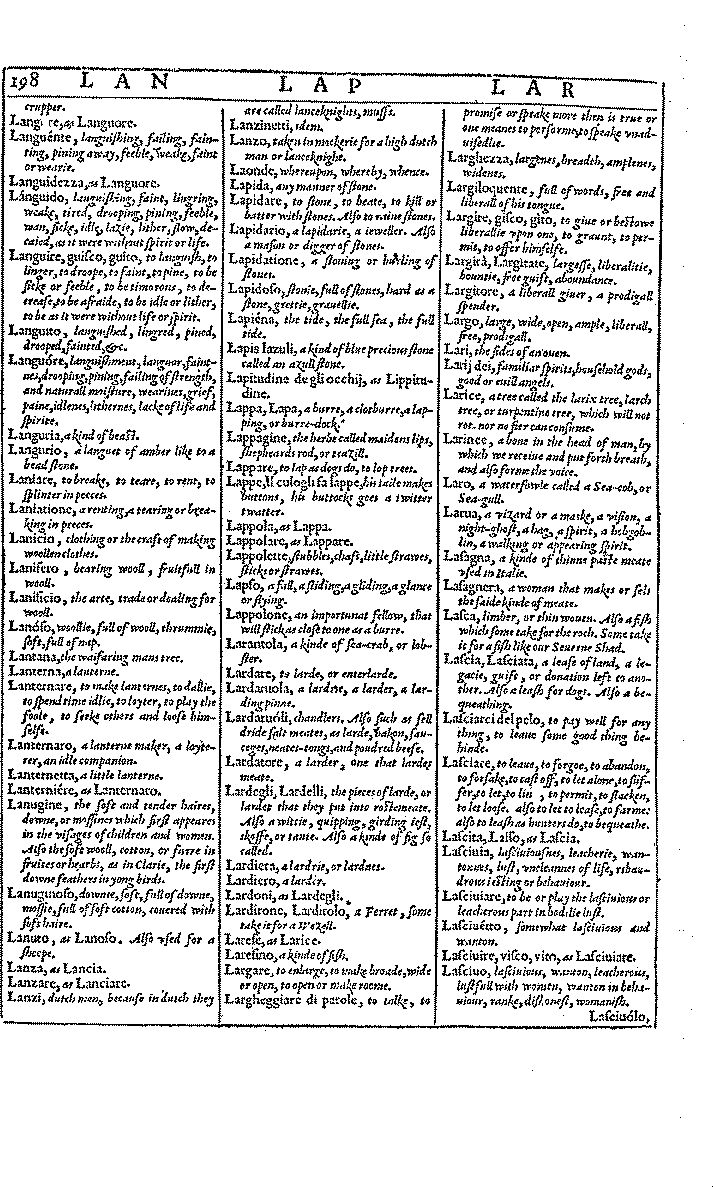 198 LAN LAP LAR
crupper.
Languire, as Languore.
Languénte, languiſhing, failing, fain-
ting, pining away, feeble, weake, faint
or wearie.
Languidezza, as Languore.
Lánguido, languiſhing, faint, lingring,
weake, tired, drooping, pining, feeble,
wan, ſicke, idle, lazie, lither, ſlow, de-
caied, as it were without ſpirit or life.
Languire, guiſco, guito, to languiſh, to
linger, to droope, to faint, to pine, to be
ſicke or feeble, to be timorous, to de-
creaſe, to be afraide, to be idle or lither,
to be as it were without life or ſpirit.
Languito, languiſhed, lingred, pined,
drooped, fainted, &c.
Languóre, languiſhment, languor, faint-
nes, drooping, pining, failing of ſtrength,
and naturall moiſture, wearines, grief,
paine, idlenes, lithernes, lacke of life and
ſpirite.
Languria, a kind of beaſt.
Langurio, a languet of amber like to a
bead ſtone.
Laniare, to breake, to teare, to rent, to
ſplinter in peeces.
Laniatione, a renting, a tearing or brea-
king in peeces.
Lanicio, clothing or the craft of making
woollen clothes.
Lanifero, bearing wooll, fruitfull in
wooll.
Lanificio, the arte, trade or dealing for
wooll.
Lanóſo, woollie, full of wooll, thrummie,
ſoft, full of nap.
Lantana, the waifaring mans tree.
Lanterna, a lanterne.
Lanternare, to make lanternes, to dallie,
to ſpend time idlie, to loyter, to play the
foole, to ſeeke others and looſe him-
ſelfe.
Lanternaro, a lanterne maker, a loyte-
rer, an idle companion.
Lanternetta, a little lanterne.
Lanterniére, as Lanternaro.
Lanugine, the ſoft and tender haires,
downe, or moſſines which firſt appeares
in the viſages of children and women.
Alſo the ſoft wooll, cotton, or furre in
fruites or hearbs, as in Clarie, the firſt
downe feathers in yong birds.
Lanuginoſo, downie, ſoft, full of downe,
moſſie, full of ſoft cotton, couered with
ſoft haire.
Lanuto, as Lanoſo. Alſo vſed for a
ſheepe.
Lanza, as Lancia.
Lanzare, as Lanciare.
Lanzi, dutch men, becauſe in dutch they
are called lanceknights, muffs.
Lanzinetti, idem.
Lanzo, taken in mockerie for a high dutch
man or lanceknight.
Laonde, whereupon, whereby, whence.
Lapida, any manner of ſtone.
Lapidare, to ſtone, to beate, to kill or
batter with ſtones. Alſo to raine ſtones.
Lapidario, a lapidarie, a ieweller. Alſo
a maſon or digger of ſtones.
Lapidatione, a ſtoning or hurling of
ſtones.
Lapidoſo, ſtonie, full of ſtones, hard as a
ſtone, grettie, grauellie.
Lapiéna, the tide, the full ſea, the full
tide.
Lapis lazuli, a kind of blue precious ſtone
called an azull ſtone.
Lapitudine de gli occhij, as Lippitu-
dine.
Lappa, Lapa, a burre, a clotburre, a lap-
ping, or burre-dock.
Lappagine, the herbe called maidens lips,
ſhepheards rod, or teazill.
Lappare, to lap as dogs do, to lop trees.
Lappe, Il culo gli fa lappe, his taile makes
buttons, his buttocks goes a twitter
twatter.
Lappola, as Lappa.
Lappolare, as Lappare.
Lappolette, ſtubbles, chaff, little ſtrawes,
ſticks or ſtrawes.
Lapſo, a fall, a ſliding, a gliding, a glance
or flying.
Lappolone, an importunat fellow, that
will ſtick as cloſe to one as a burre.
Larantola, a kinde of ſea-crab, or lob-
ſter.
Lardare, to larde, or enterlarde.
Lardaruola, a lardrie, a larder, a lar-
ding pinne.
Lardaruóli, chandlers. Alſo ſuch as ſell
dride ſalt meates, as larde, bakon, ſau-
ceges, neates-tongs, and poudred beefe.
Lardatore, a larder, one that lardes
meate.
Lardegli, Lardelli, the pieces of larde, or
lardes that they put into roſtemeate.
Alſo a wittie, quipping, girding ieſt,
ſkoffe, or tante. Alſo a kinde of fig ſo
called.
Lardiera, a lardrie, or lardnes.
Lardiero, a larder.
Lardoni, as Lardegli.
Lardirone, Lardirolo, a Ferret, ſome
take it for a Wezell.
Lareſe, as Larice.
Lareſino, a kinde of fiſh.
Largare, to enlarge, to make broade, wide
or open, to open or make roome.
Largheggiare di parole, to talke, to
promiſe or ſpeake more then is true or
one meanes to performe, to ſpeake vnad-
uiſedlie.
Larghezza, largenes, breadth, amplenes,
widenes.
Largiloquente, full of words, free and
liberall of his tongue.
Largire, giſco, gito, to giue or beſtowe
liberallie vpon one, to graunt, to per-
mit, to offer himſelfe.
Largità, Largitate, largeſſe, liberalitie,
bountie, free guift, aboundance.
Largitore, a liberall giuer, a prodigall
ſpender.
Largo, large, wide, open, ample, liberall,
free, prodigall.
Lari, the ſides of an ouen.
Larij dei, familiar ſpirits, houſehold gods,
good or euill angels.
Larice, a tree called the larix tree, larch
tree, or turpentine tree, which will not
rot. nor no fier can conſume.
Larince, a bone in the head of man, by
which we receive and put forth breath,
and alſo forme the voice.
Laro, a waterfowle called a Sea-cob, or
Sea-gull.
Larua, a vizard or a maske, a viſion, a
night-ghoſt, a hag, a ſpirit, a hobgob-
lin, a walking or appearing ſpirit.
Laſagna, a kinde of thinne paſte meate
vſed in Italie.
Laſagnera, a woman that makes or ſels
the ſaide kinde of meate.
Laſca, limber, or thin wouen. Alſo a fiſh
which ſome take for the roch. Some take
it for a fiſh like our Seuerne Shad.
Laſcia, Laſciata, a leaſe of land, a le-
gacie, guift, or donation left to ano-
ther. Alſo a leaſh for dogs. Alſo a be-
queathing.
Laſciarci del pelo, to pay well for any
thing, to leaue ſome good thing be-
hinde.
Laſciare, to leaue, to forgoe, to abandon,
to forſake, to caſt off, to let alone, to ſuf-
fer, to let, to lin, to permit, to ſlacken,
to let looſe. alſo to let to leaſe, to farme:
alſo to leaſh as hunters do, to bequeathe.
Laſcita, Laſſo, as Laſcia.
Laſciuia, laſciuiouſnes, leacherie, wan-
tonnes, luſt, vncleannes of life, ribau-
drous ieſting or behauiour.
Laſciuiare, to be or play the laſciuious or
leacherous part in bodilie luſt.
Laſciuétto, ſomewhat laſciuious and
wanton.
Laſciuire, viſco, vito, as Laſciuiare.
Laſciuo, laſciuious, wanton, leacherous,
luſtfull with women, wanton in beha-
uiour, ranke, diſhoneſt, womaniſh.
Laſciuólo,